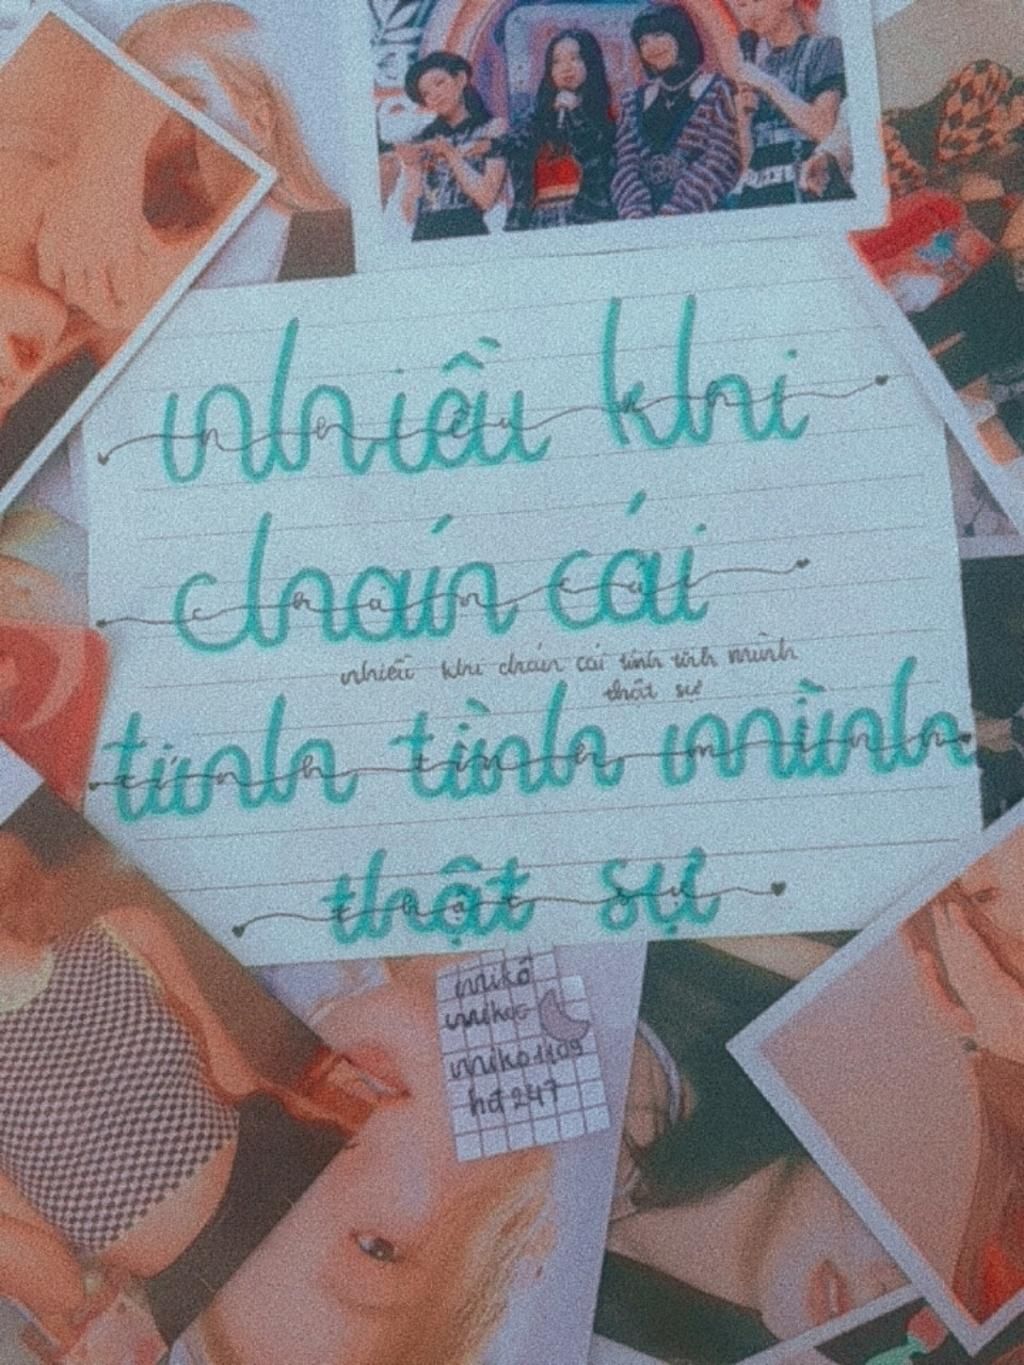 nhiều khi
chán cái
nhiều khi chán cái tính tình mình
thật sự
tính tình mình
thật sự
mikô
miko1109
hđ247